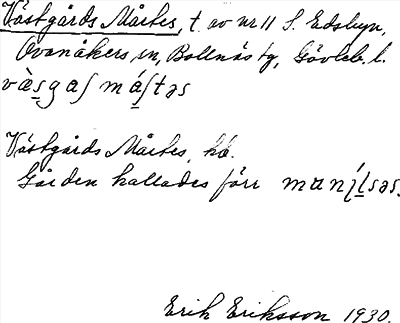 Västgårds Mårtes, t. av nr 11 S. Edsbyn,
Ovanåkers sn, Bollnäs tg, Gävleb. l.
Västgårds Mårtes, hb.
Gården kallades förr
Erik Eriksson 1930.